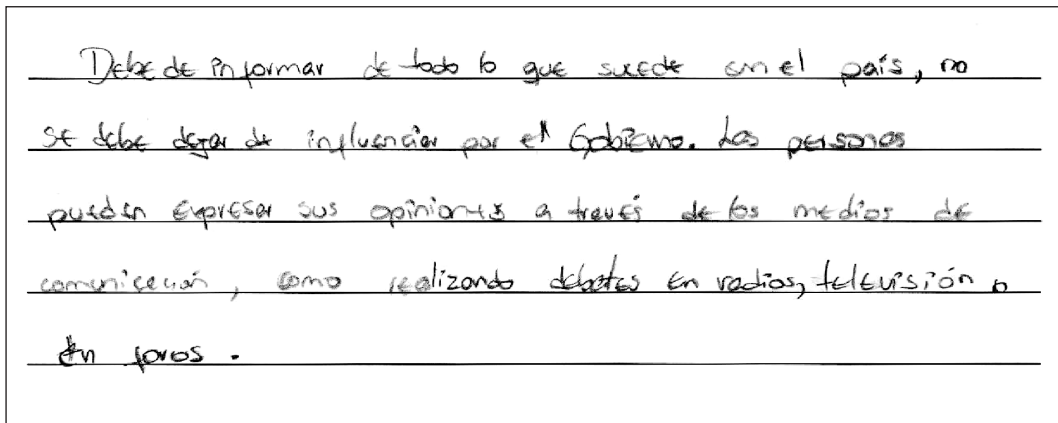 Debe de informar de todo lo que sucede en el país, no
se debe dejar de influenciar por el Gobierno. Las personas
pueden expresar sus opiniones a través de los medios de
comunicación, como realizando debates en radios, televisión o
en foros.